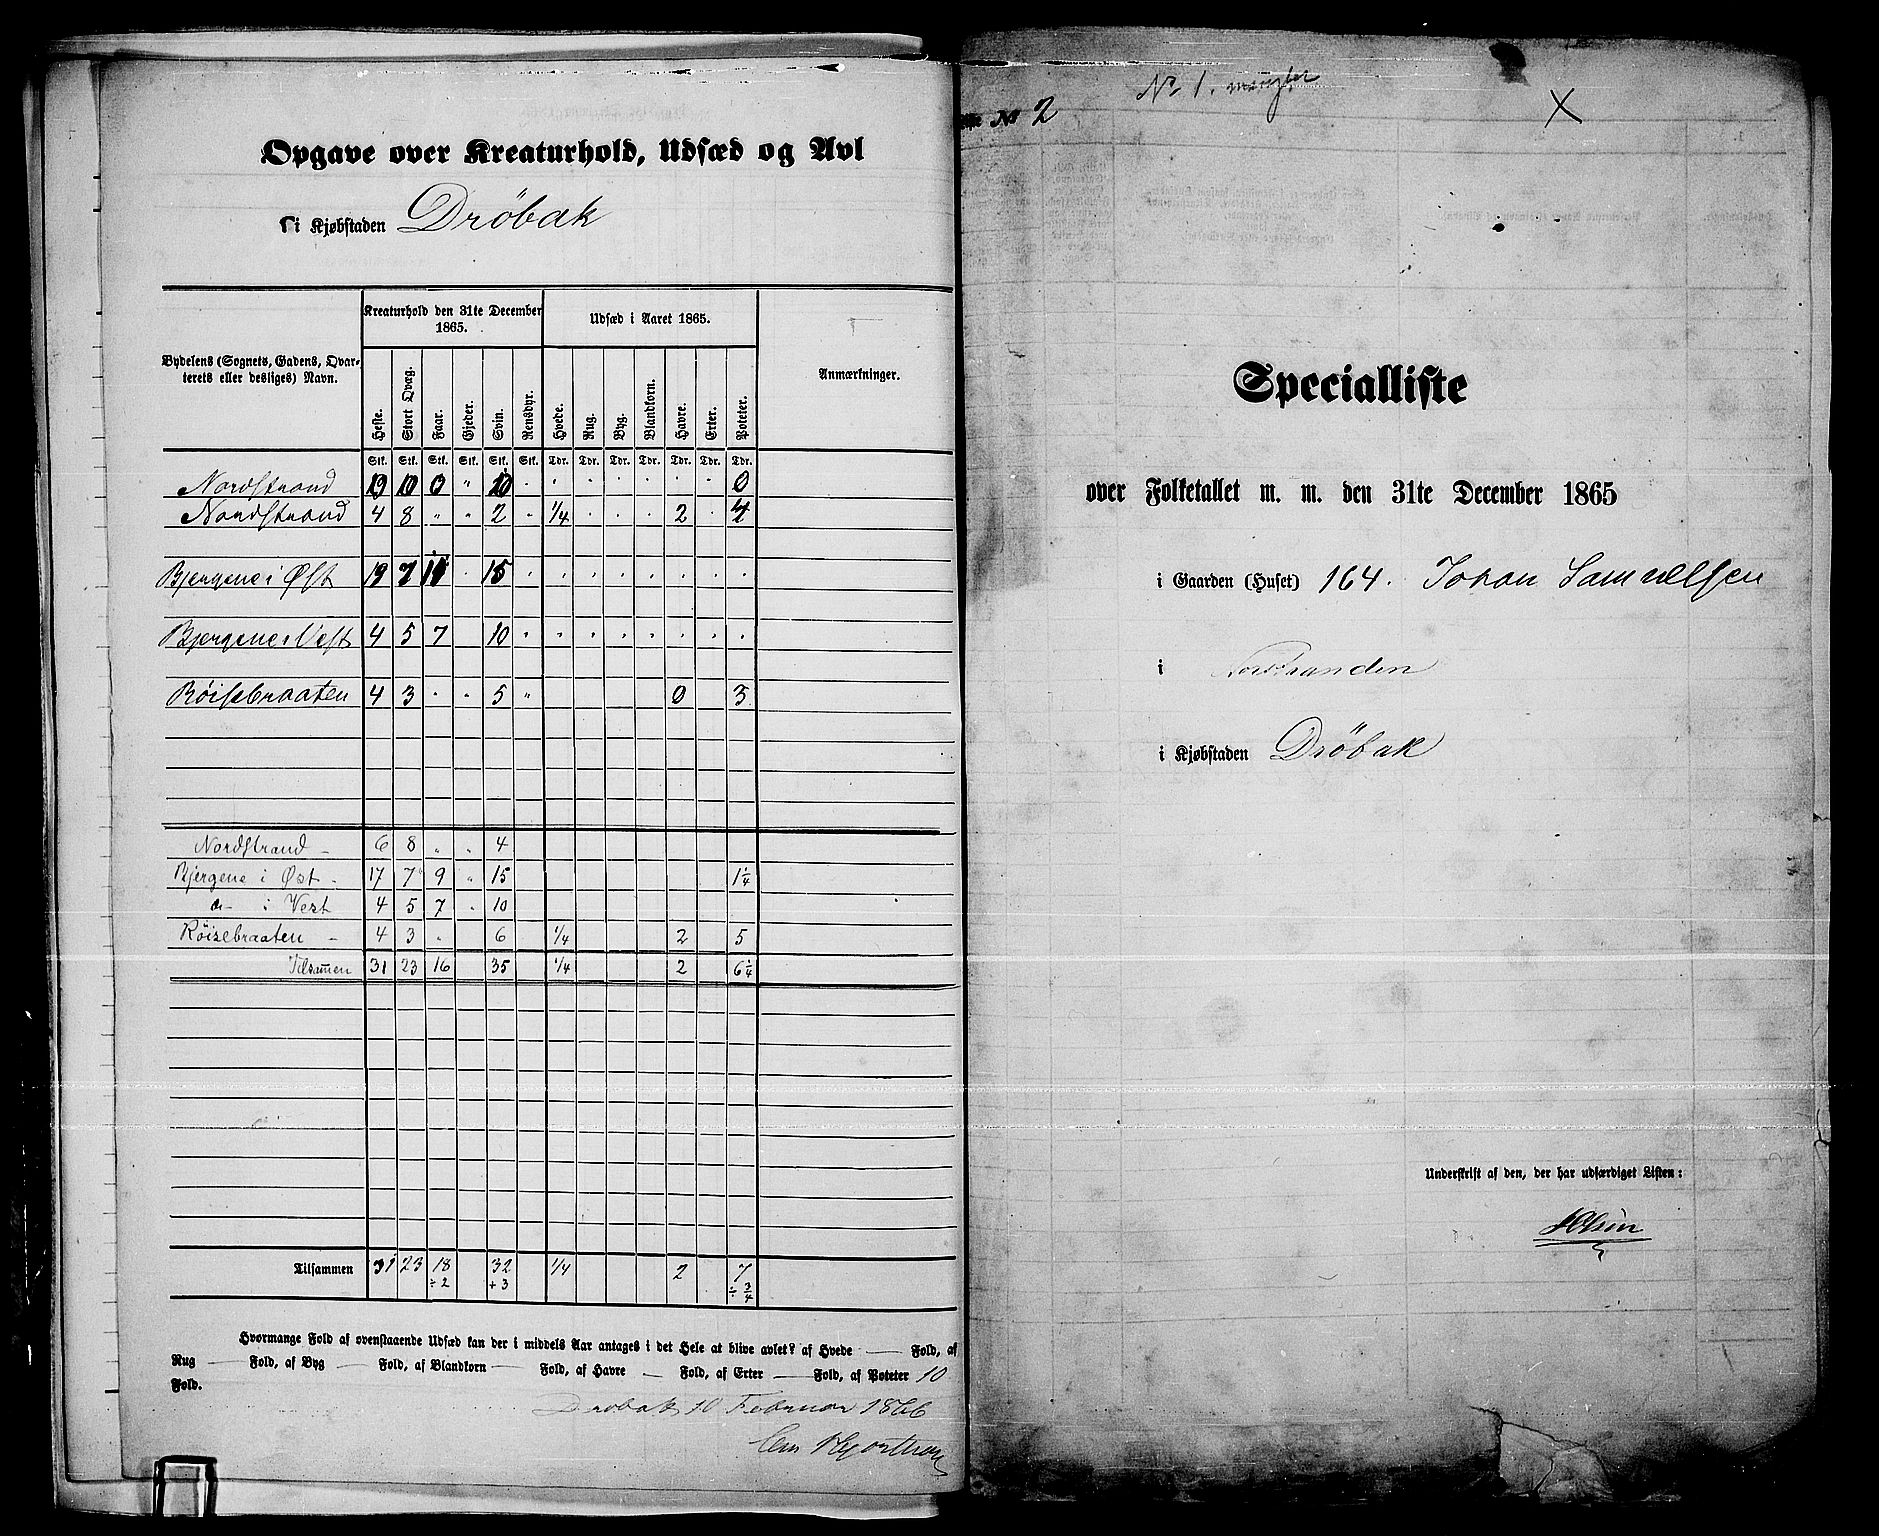 Opgave over Kreaturhold, Udsæd og Avl
i Kjøbstaden Dröbak
Bydelens (Sognets, Gadens, Qvarterets eller desliges) Navn.
Kreaturhold den 31te December 1865.
Udsæd i Aaret 1865.
Anmærkninger.
Heste. Stort Qvæg. Faar. Gjeder. Svin. Rensdyr. Hvede. Rug. Byg. Blandkorn. Havre. Erter. Poteter.
Stk. Stk. Stk. Stk. Stk. Stk. Tdr. Tdr. Tdr. Tdr. Tdr. Tdr. Tdr.
Nordstrand 10 0 " 10 0
Nordstrand 4 8 " " 2 " 1/4 2
Bjergene i Øst 19 7 15
Bjergene i Vest 4 5 7 10
Röisebraaten 4 3 " " 5 " 0 3
Nordstrand - 6 8 " " 4
Bjergene i Øst - 17 7 9 " 15 1 1/4
do - i Vest 4 5 7 " 10
Röisebraaten - 4 3 " 6 1/4 2 5
Tilsammen 31 23 16 35 1/4 2 6 1/4
Tilsammen 31 23 18 32 1/4 2 7
÷ 2 + 3 ÷ 3/4
Hvormange Fold af ovenstaaende Udsæd kan der i middels Aar antages i det Hele at blive avlet? af Hvede — Fold, af
Rug — Fold, af Byg — Fold, af Blandkorn — Fold, af Havre — Fold, af Erter — Fold, af Poteter 10
Fold.
Drobak 10 Februar 1866
No 2
No. 1. mangler
X
Specialliste
over Folketallet m. m. den 31te December 1865
i Gaarden (Huset) 164. Johan Samuelsen
i Nordstranden
i Kjøbstaden Dröbak
Underskrift af den, der har udfærdiget Listen: